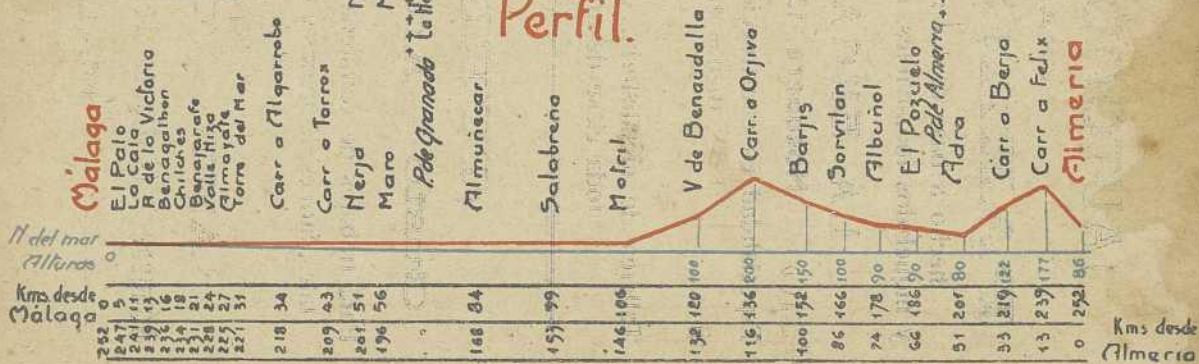 Perfil.
Málaga
El Palo
La Cala
R de la Victoria
Benagalbon
Chilches
Benajarafe
Valle Niza
Almayate
Torre del Mar
Carr a Algarrobo
Carr a Torrox
Nerja
Maro
P. de Granada
Almuñecar
Salobreña
Motril
V de Benaudalla
Carr. a Orjiva
Barjis
Sorvilan
Albuñol
El Pozuelo
P. de Almeria
Adra
Carr a Berja
Carr a Felix
Almeria
N del mar
Alturas 0 100 200 150 100 90 90 80 122 177 86
Kms. desde Málaga 0 5 11 13 16 18 21 24 27 31 34 43 51 56 84 99 106 120 136 152 166 178 186 201 219 239 252
252 247 241 239 236 234 231 228 225 221 218 209 201 196 168 153 146 132 116 100 86 74 66 51 33 13 0 Kms desde Almeria